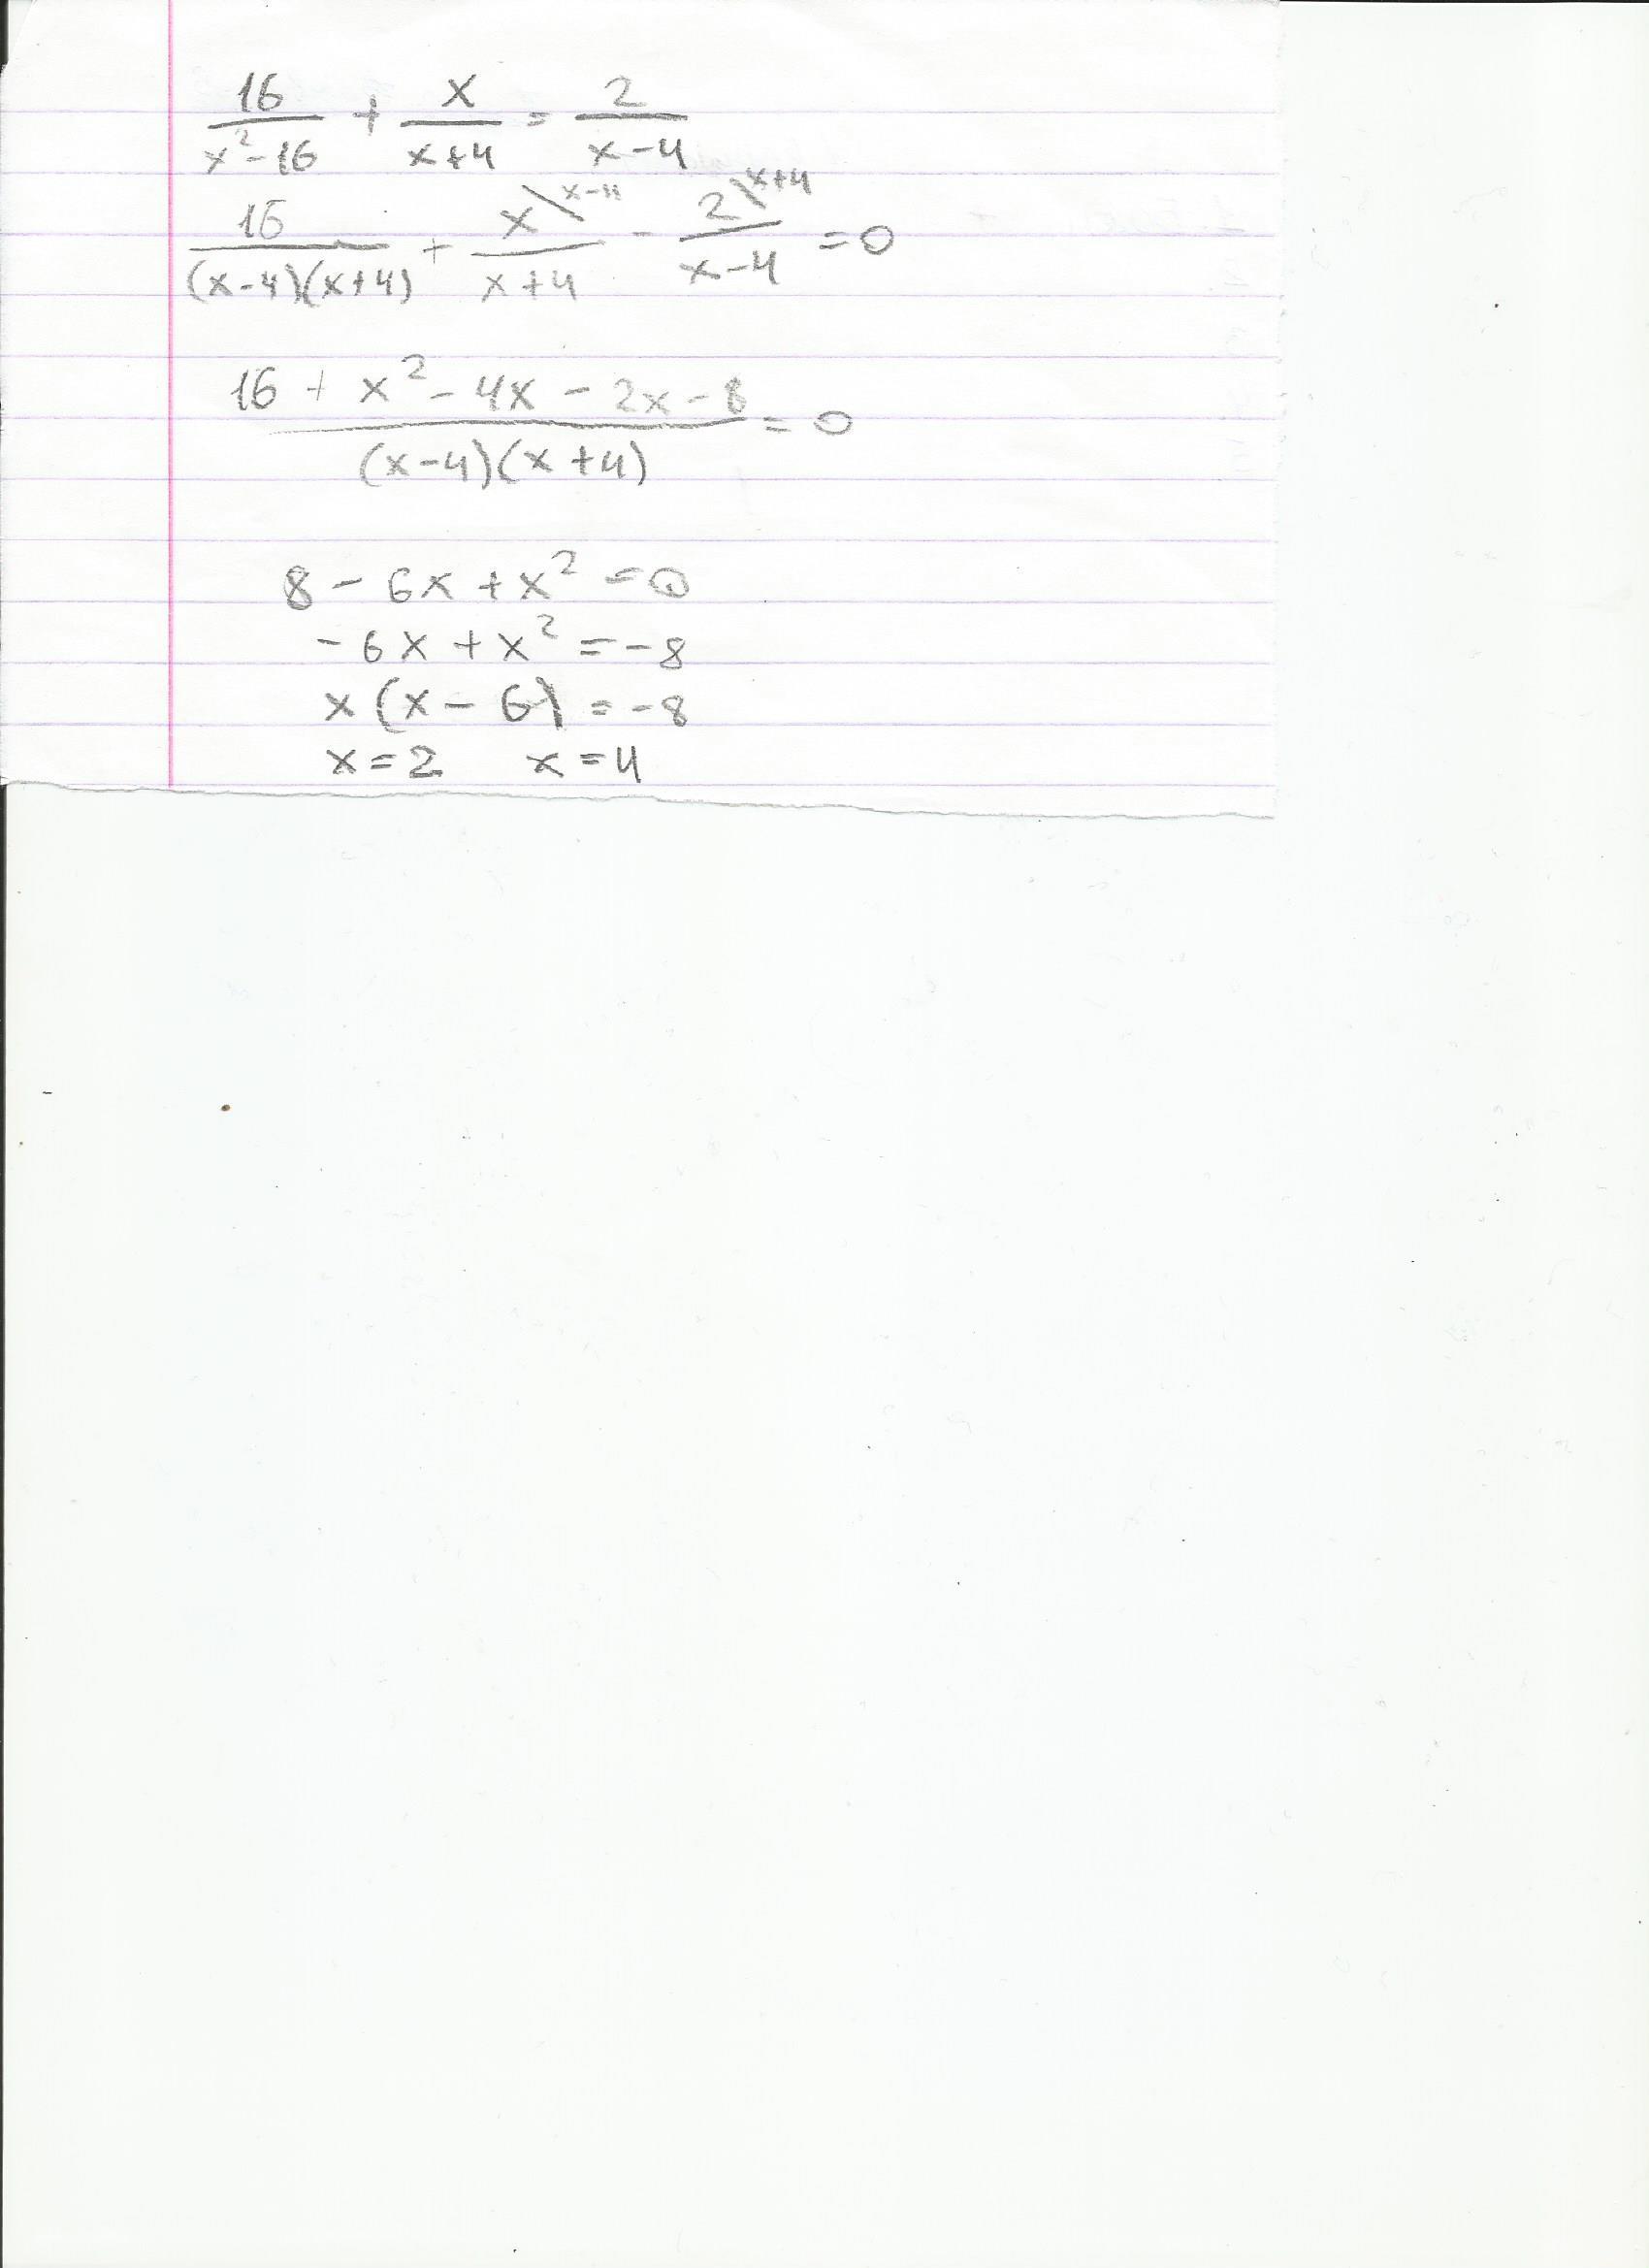 16/(x²-16) + x/(x+4) = 2/(x-4)
16/((x-4)(x+4)) + x\x-4/(x+4) - 2\x+4/(x-4) = 0
(16 + x² - 4x - 2x - 8)/((x-4)(x+4)) = 0
8 - 6x + x² = 0
-6x + x² = -8
x(x - 6) = -8
x = 2 x = 4